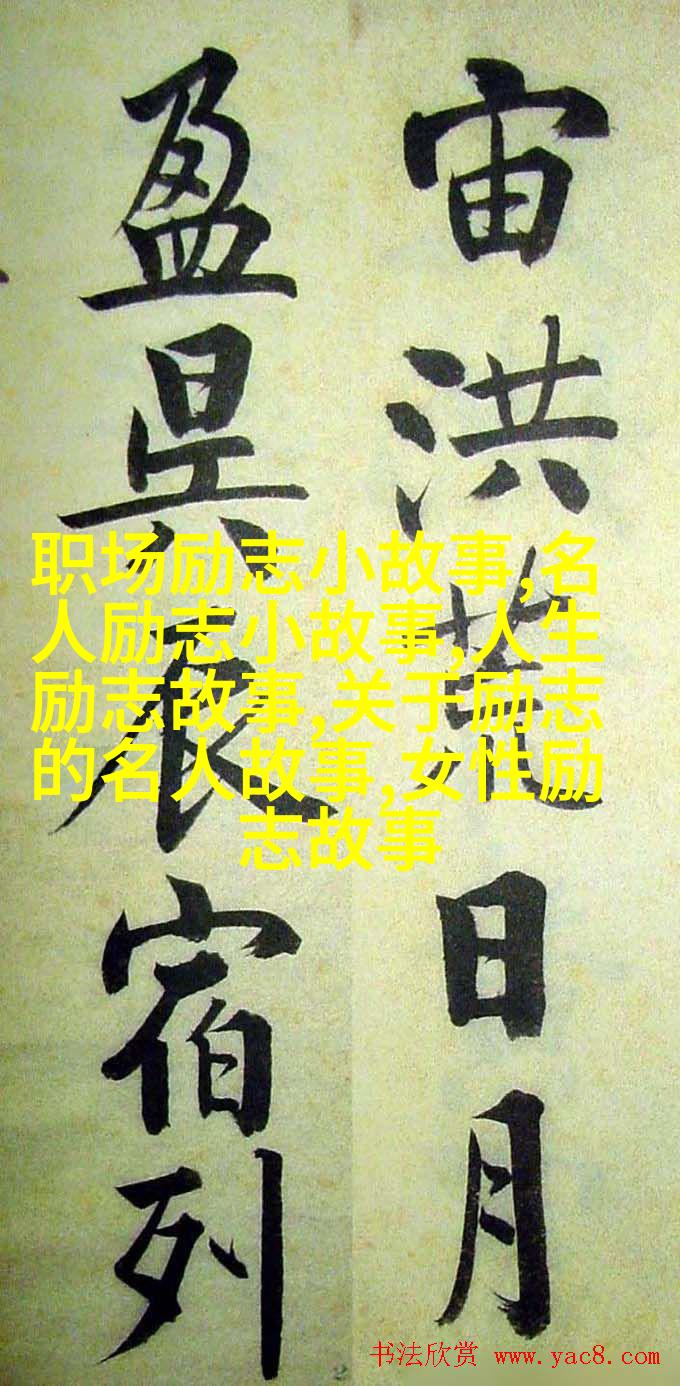 宙洪荒日月
盈昃辰宿列
职场励志小故事,名
人励志小故事,人生
励志故事,关于励志
的名人故事,女性励
志故事
书法欣赏 www.yac8.com